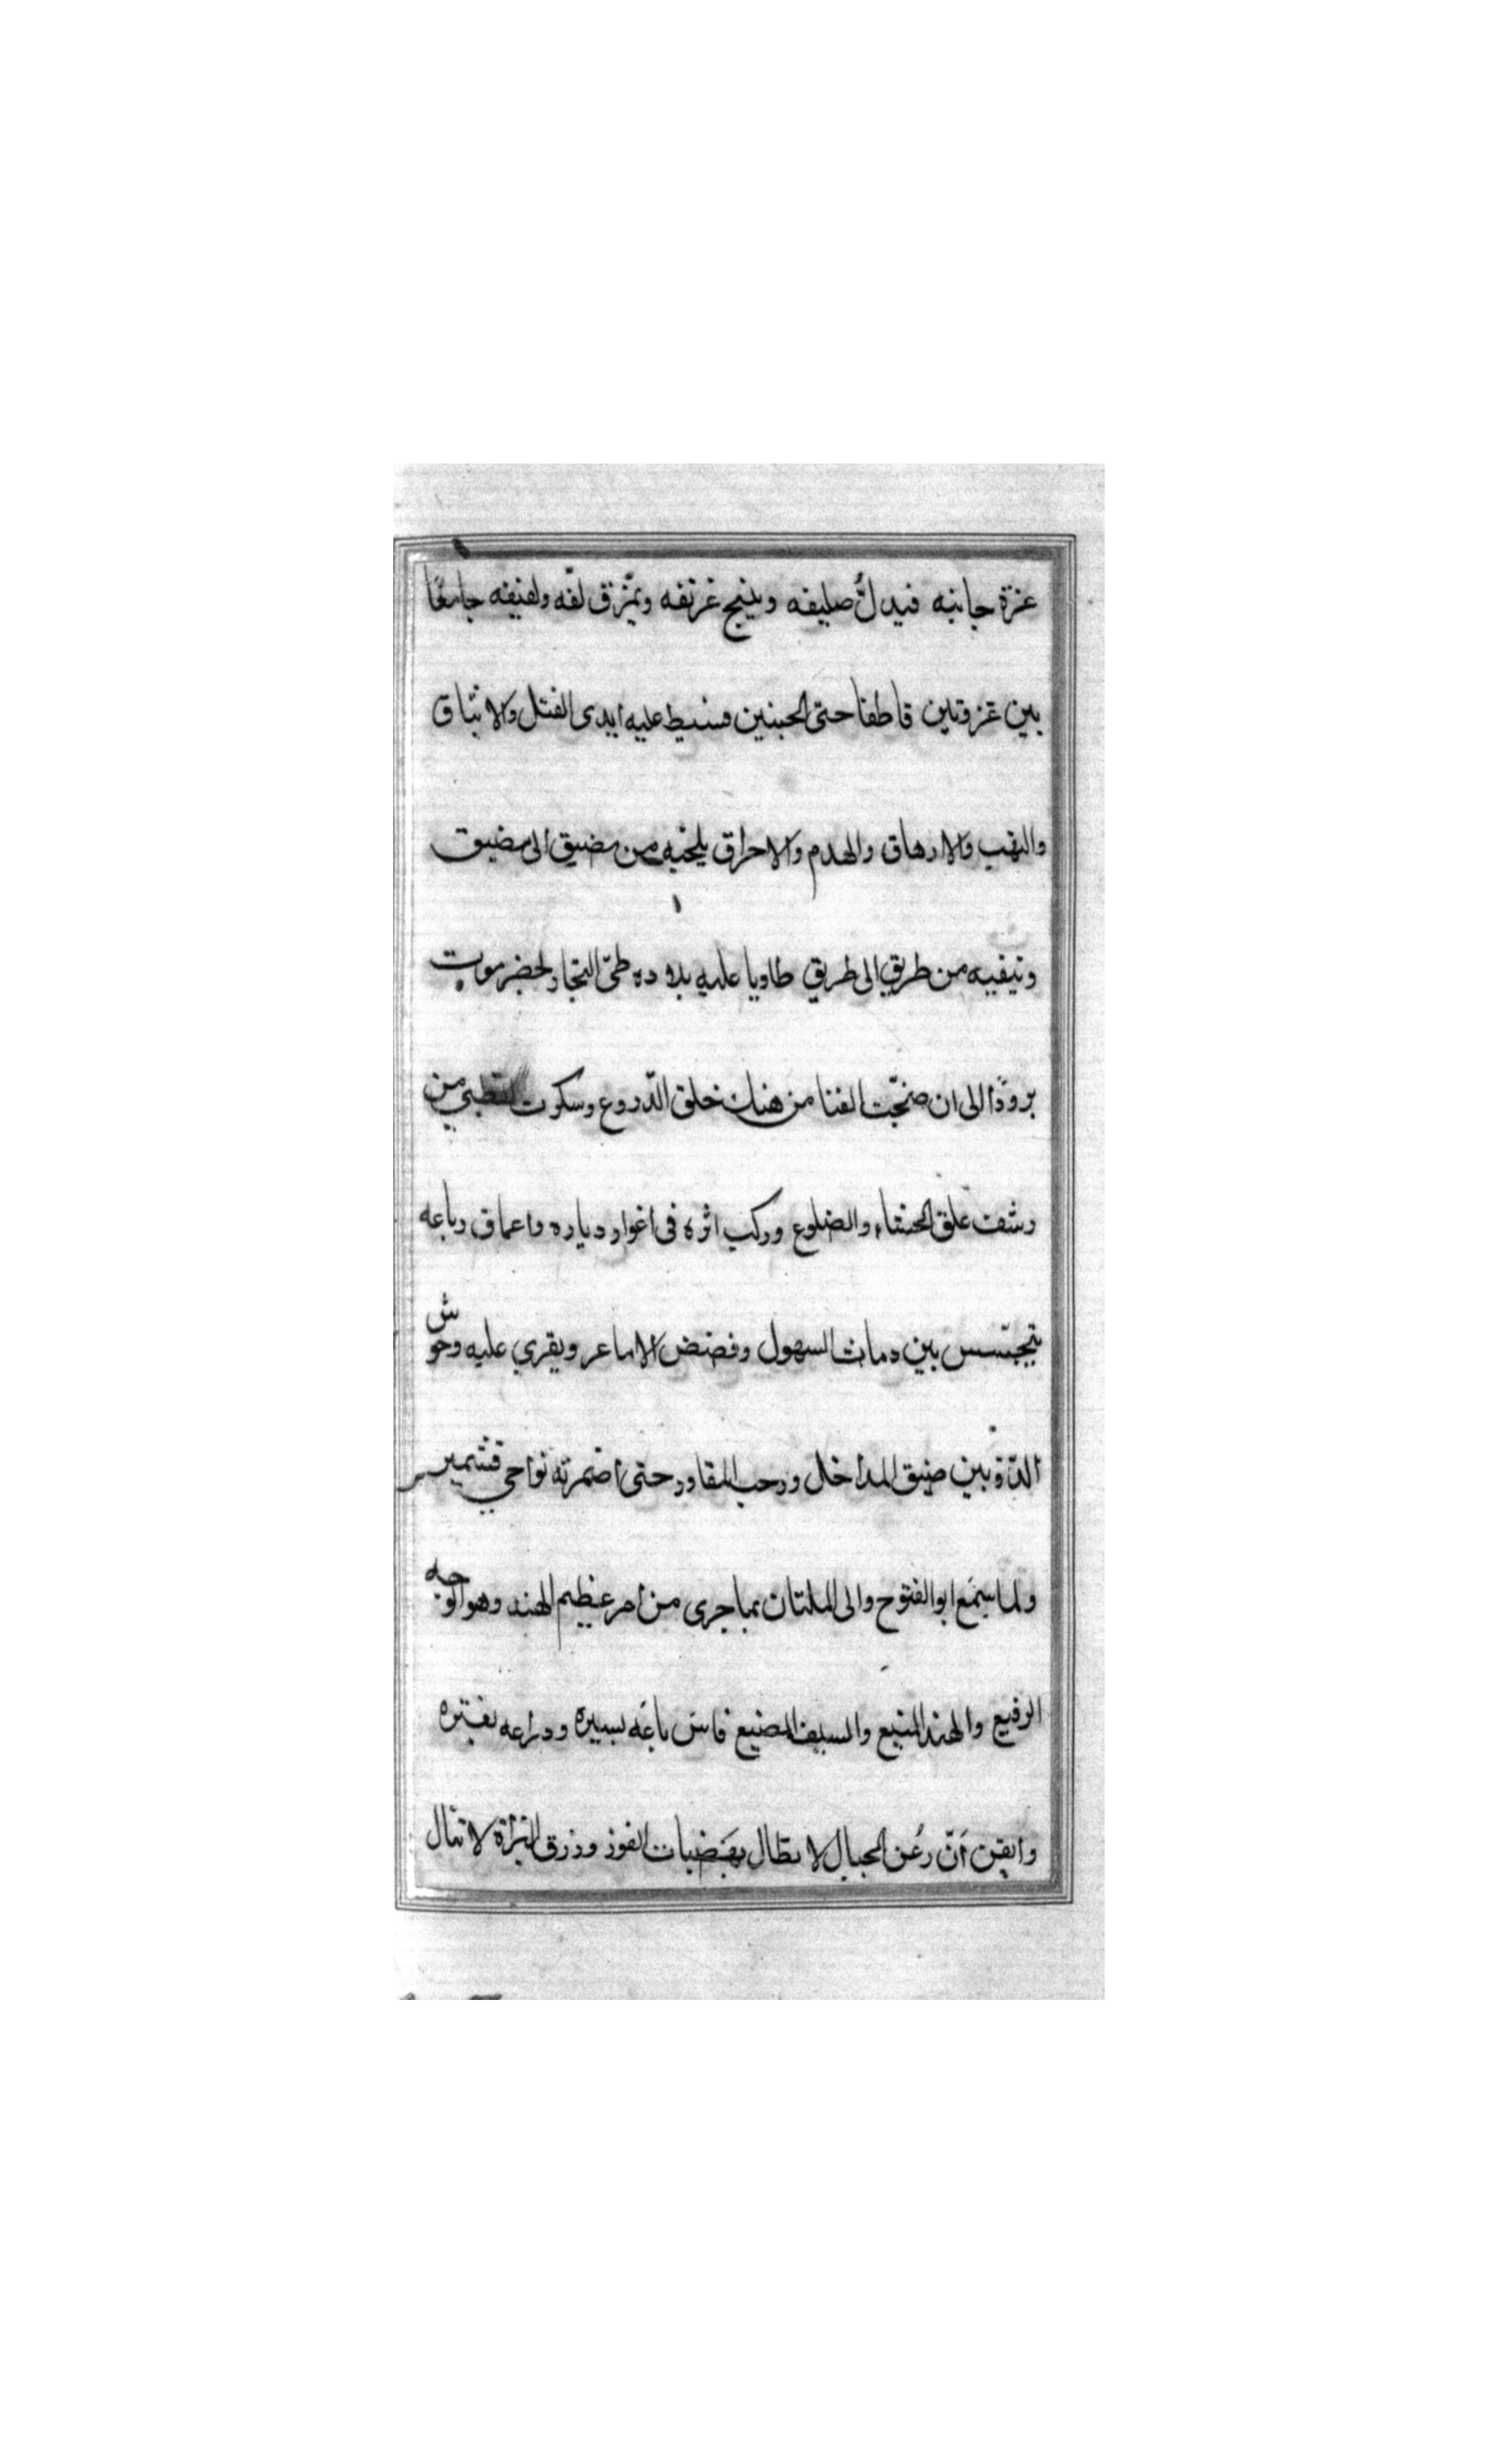 عزة جانبه فيدلّ صليفه وينيح غرنفه ويمّزق لفّه ولفيفه جامعًا
بين غزوتين قاطفا حتى الجنتين فبسط عليه ايدى القتل والا نثاق
والنهب والارهاق والهدم والاحراق يلجئه من مضيق الى مضيق
وينفيه من طريق الى طريق طاويا عليه بلاده طىّ التجار لحضرموت
برودًا الى ان ضجّت القنا من هتك حلق الدّروع وسكرت الظبي من
رشف علق الحشاء والضلوع وركب اثره فى اغوار دياره واعماق رباعه
يتجسّس بين دماث السهول وقضض الاماعر ويقري عليه وحوش
الدّوّ بين ضيق المداخل ورحب المقاور حتى اضمرته نواحي قشمير
ولما سمع ابو الفتوح والى الملتان بما جرى من امر عظيم الهند وهو الوجه
الرفيع والهند المنيع والسيف الصنيع قاس باعه بسيره وذراعه بفتره
وايقن أنّ رعُن الجبال لا تطال بهَضبات الفوز وزرق البزاة لا تنال